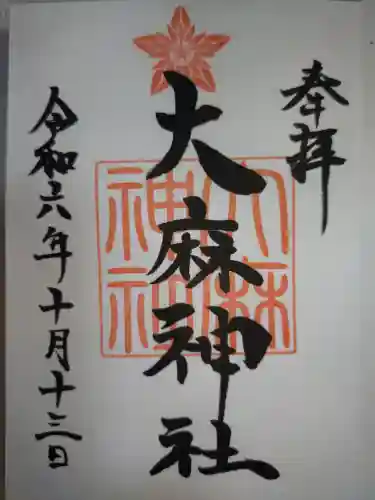 奉拝
大麻神社
大麻神社
令和六年十月十三日